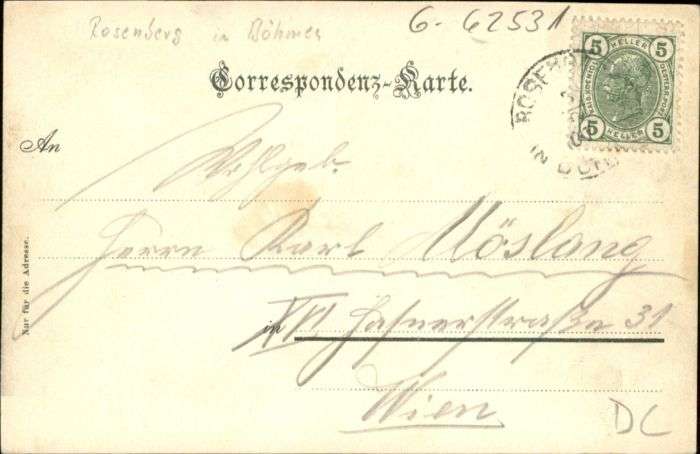 Rosenberg in Böhmen
G- 62531
5 HELLER 5
5 HELLER 5
ROSENB
IN BÖHM
Correspondenz-Karte.
An
Wohlgeb.
Herrn Karl Möslang
in XVI Hasnerstraße 31
Wien
Nur für die Adresse.
DC